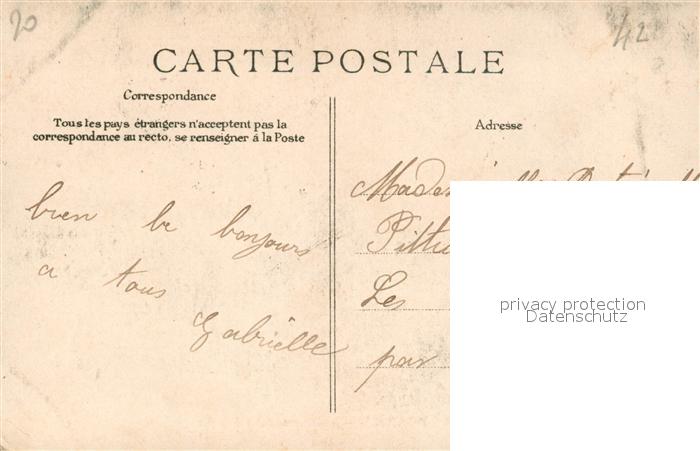 20
42
CARTE POSTALE
Correspondance
Tous les pays étrangers n'acceptent pas la
correspondance au recto, se renseigner à la Poste
bien le bonjours
a tous
Gabrielle
Adresse
Les
par
privacy protection
Datenschutz